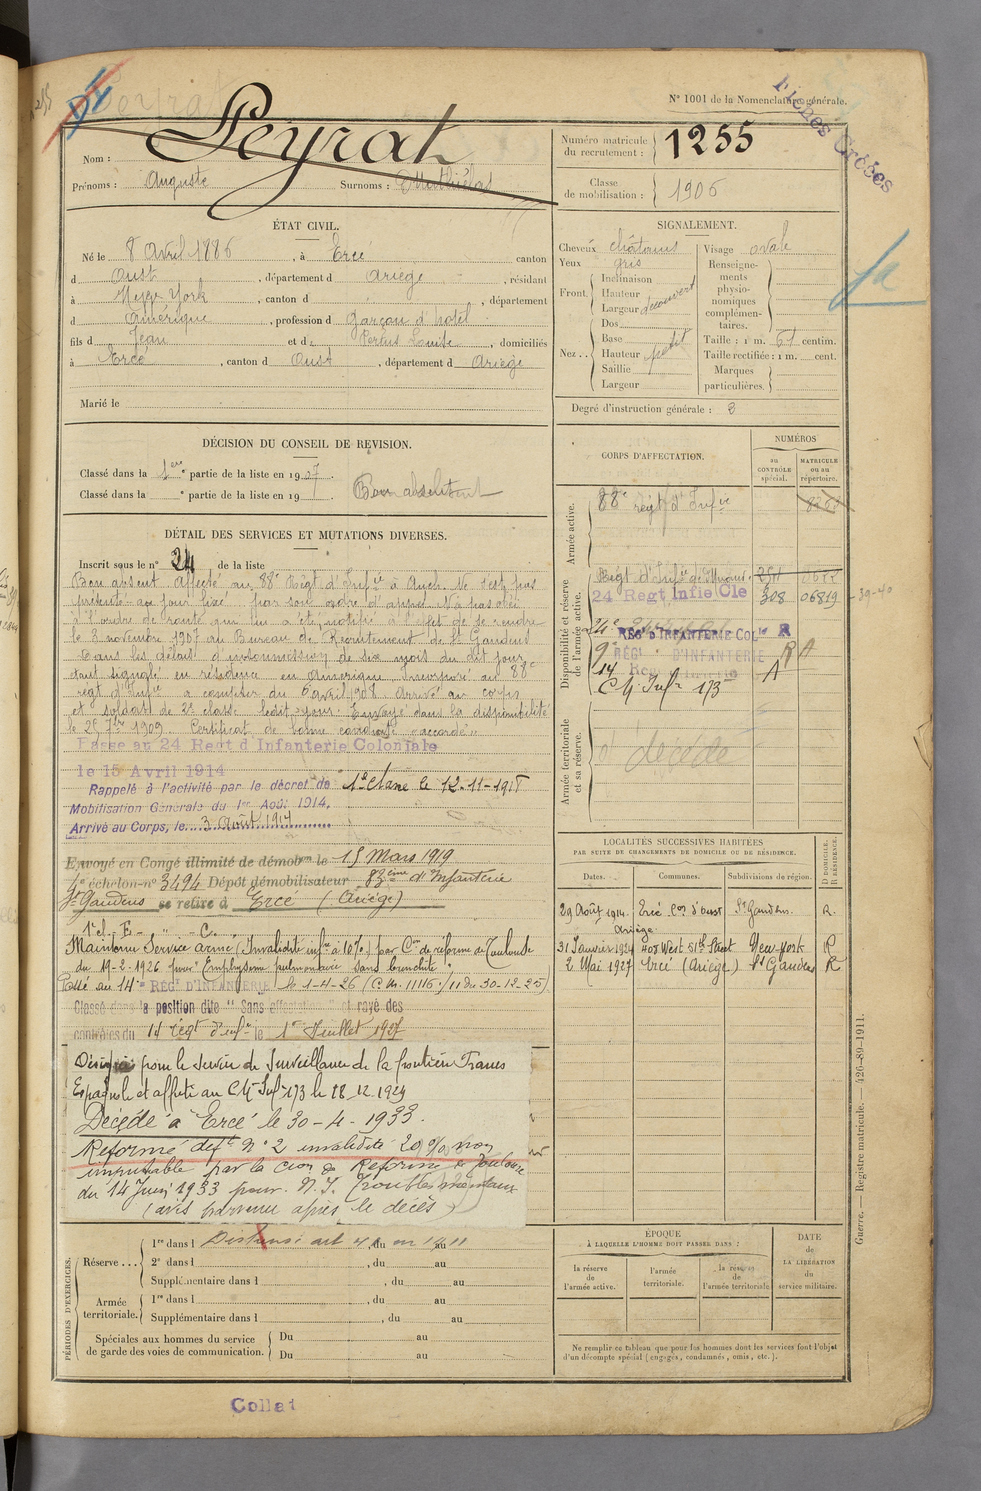 Fiches Créées
N° 1001 de la Nomenclature générale.
Nom : Peyrat
Prénoms : Auguste Surnoms : Mathieu
Numéro matricule du recrutement : 1255
Classe de mobilisation : 1906
ÉTAT CIVIL.
Né le 8 Avril 1886, à Ercé canton
d Oust, département d Ariège, résidant
à New York, canton d , département
d Amérique, profession d garçon d'hôtel
fils d Jean et d Pertus Louise, domiciliés
à Ercé, canton d Oust, département d Ariège
Marié le
SIGNALEMENT.
Cheveux châtains
Yeux gris
Front. Inclinaison
Hauteur
Largeur découvert
Nez.. Dos
Base
Hauteur petit
Saillie
Largeur
Visage ovale
Renseignements physionomiques complémentaires.
Taille : 1 m. 61 centim.
Taille rectifiée : 1 m. cent.
Marques particulières.
Degré d'instruction générale : 3
DÉCISION DU CONSEIL DE REVISION.
Classé dans la 1ere partie de la liste en 1907.
Classé dans la e partie de la liste en 19
Bon absent
DÉTAIL DES SERVICES ET MUTATIONS DIVERSES.
Inscrit sous le n° 24 de la liste
Bon absent. Affecté au 88e Régt d'Infie à Auch. Ne s'est pas
présenté au jour fixé par son ordre d'appel. N'a pas obéi
à l'ordre de route qui lui a été notifié à l'effet de se rendre
le 3 novembre 1907 au Bureau de Recrutement de St Gaudens
Dans les délais d'insoumission de six mois du dit jour
étant signalé en résidence en Amérique. Incorporé au 88e
régt d'Infie à compter du 6 avril 1908. Arrivé au corps
et soldat de 2e classe ledit jour. Envoyé dans la disponibilité
le 25 7bre 1909. Certificat de bonne conduite "accordé"
Passé au 24 Regt d'Infanterie Coloniale
le 15 Avril 1914
Rappelé à l'activité par le décret de
Mobilisation Générale du 1er Août 1914.
Arrivé au Corps, le 3 Août 1914
1e classe le 12-11-1918
Envoyé en Congé illimité de démobon le 15 Mars 1919
4e échelon n° 3494 Dépôt démobilisateur 83ème d'Infanterie
St Gaudens se retire à Ercé (Ariège)
Maintenu Service armé (Invalidité infre à 10%) par Con de réforme de Toulouse
du 19-2-1926 pour "Emphysème pulmonaire sans bronchite".
Passé au 14e RÉGt D'INFANTERIE le 1-4-26 (C.M. 11116/11 du 30-12-25)
Classé dans la position dite "Sans affectation" et rayé des
contrôles du 14 régt d'infie le 1er Juillet 1927
Désigné pour le Service de Surveillance de la frontière Franco
Espagnole et affecté au CM Infie 173 le 18.12.1929
Décédé à Ercé le 30-4-1933.
Réformé deft N° 2 invalidité 20% non
imputable par la Cion de Réforme de Toulouse
du 14 Juin 1933 pour : N.I. Troubles mentaux
(avis parvenu après le décès)
CORPS D'AFFECTATION.
NUMÉROS
au CONTRÔLE spécial.
MATRICULE ou au répertoire.
Armée active.
88e régt d'Infie
Disponibilité et réserve de l'armée active.
24 Regt Infie Cle 308 06819
39-40
RÉGt D'INFANTERIE Colle R
RÉGt D'INFANTERIE R A
14 A
CM Infie 173
Armée territoriale et sa réserve.
décédé
LOCALITÉS SUCCESSIVES HABITÉES
PAR SUITE DE CHANGEMENTS DE DOMICILE OU DE RÉSIDENCE.
Dates. Communes. Subdivisions de région. D DOMICILE. R RÉSIDENCE.
29 Août 1914 Ercé Con d'Oust Ariège St Gaudens. R.
31 Janvier 1924 405 West 51th Street New-York R
2 Mai 1927 Ercé (Ariège) St Gaudens R
PÉRIODES D'EXERCICES.
Réserve... 1re dans l Dispensé art , du en 1911 au
2e dans l , du au
Supplémentaire dans l , du au
Armée territoriale. 1re dans l , du au
Supplémentaire dans l , du au
Spéciales aux hommes du service de garde des voies de communication. Du au
Du au
ÉPOQUE
À LAQUELLE L'HOMME DOIT PASSER DANS :
la réserve de l'armée active.
l'armée territoriale.
la réserve de l'armée territoriale
DATE de LA LIBÉRATION du service militaire.
Ne remplir ce tableau que pour les hommes dont les services font l'objet
d'un décompte spécial (engagés, condamnés, omis, etc.).
Guerre. — Registre matricule. — 426-89-1911.
Collat